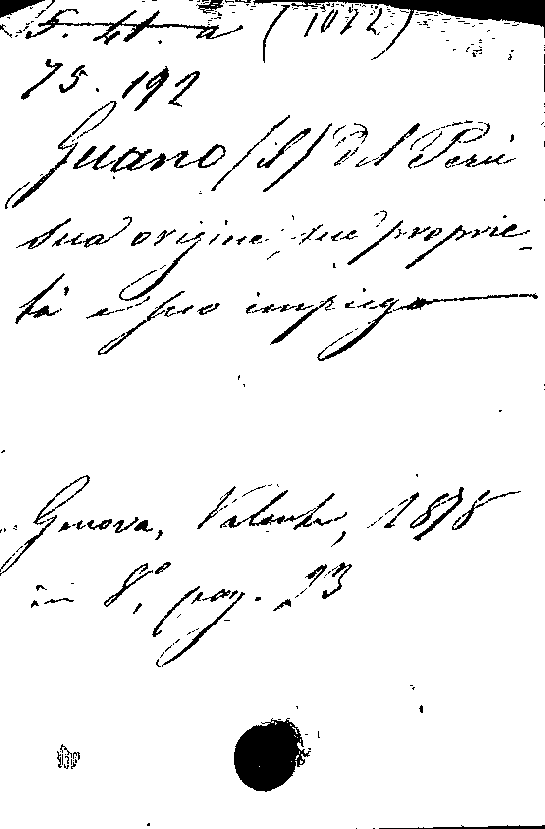 5. 41. a (1072)
75. 192
Guano (il) del Perù
sua origine, sue proprie-
tà e suo impiego
Genova, 1878
in 8°, pag. 23